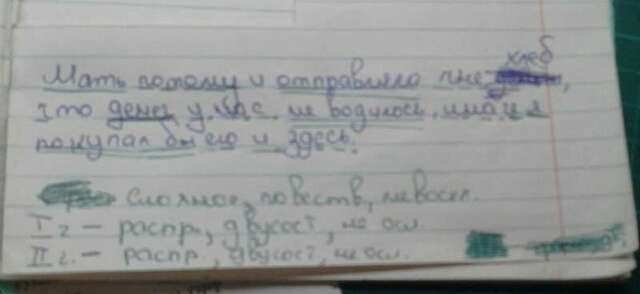 хлеб
Мать потому и отправляла мне,
что денег у нас не водилось, иначе я
покупал бы его и здесь.
Сложное, повеств, невоскл.
I г. – распр., двусост, не осл.
II г. – распр, двусост, не осл.